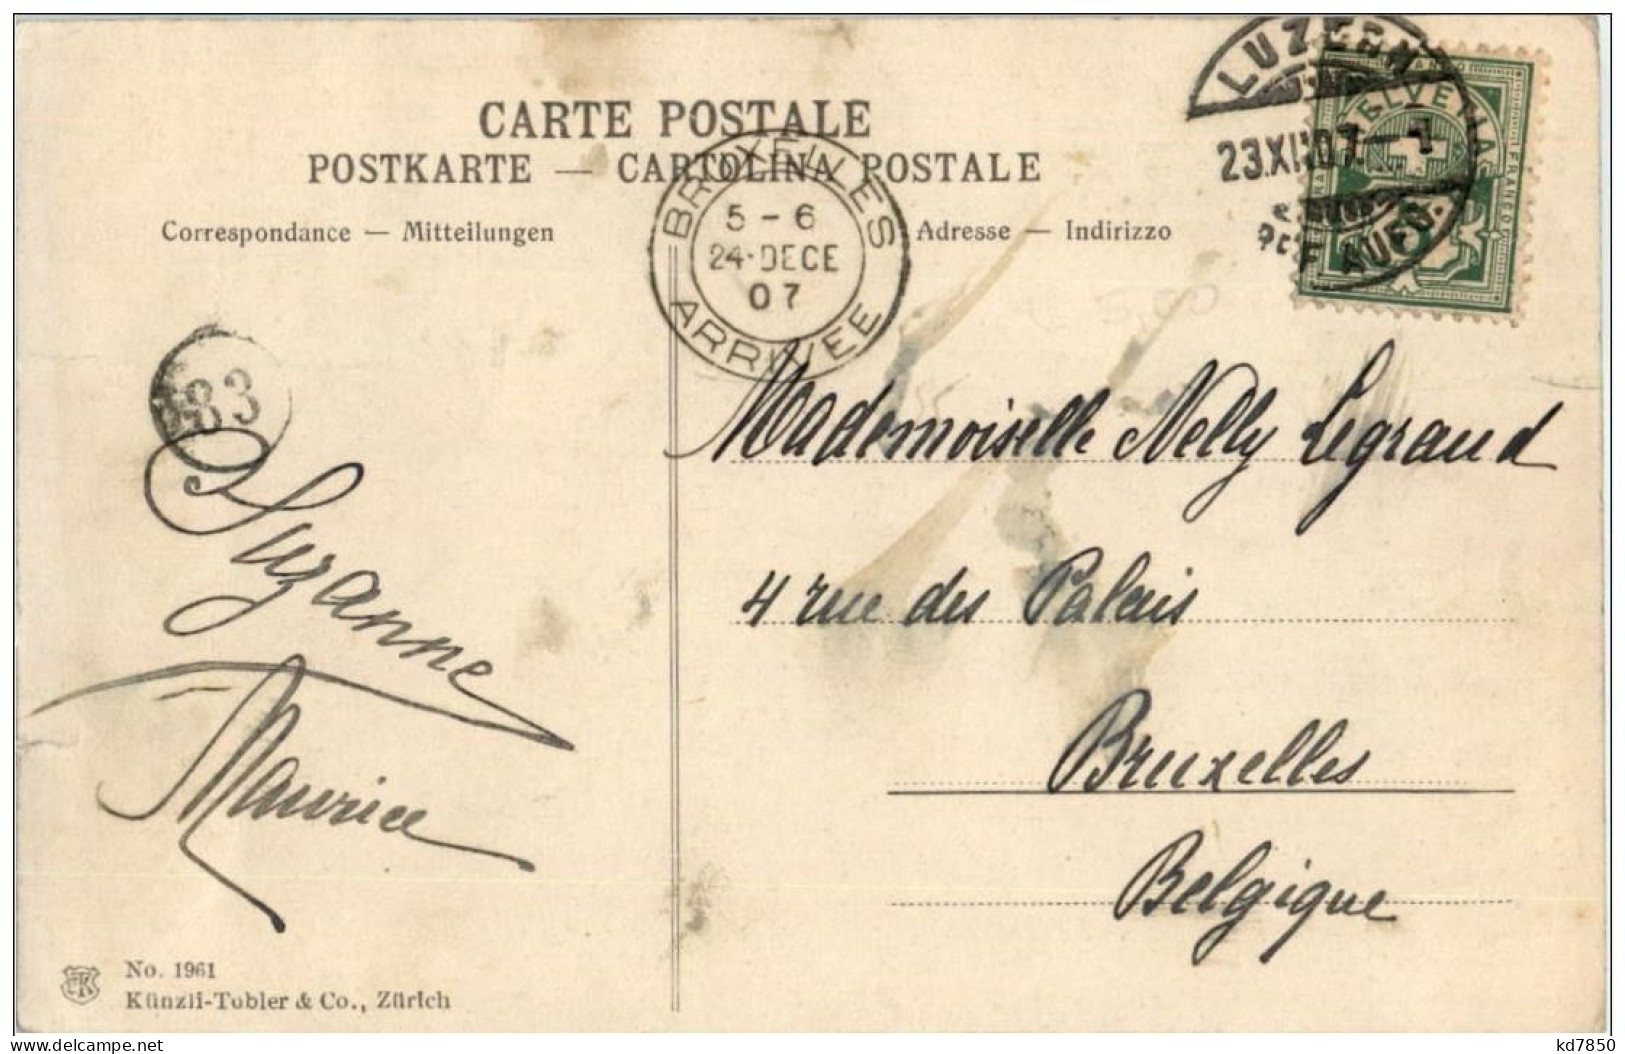 CARTE POSTALE
POSTKARTE — CARTOLINA POSTALE
Correspondance — Mitteilungen
Adresse — Indirizzo
BRUXELLES
5 - 6
24 · DECE
07
ARRIVEE
LUZERN
23.XII.07.
HELVETIA
FRANCO
83
Mademoiselle Nelly Legrand
4 rue des Palais
Bruxelles
Belgique
Suzanne
Maurice
No. 1961
Künzli-Tobler & Co., Zürich
www.delcampe.net
kd7850